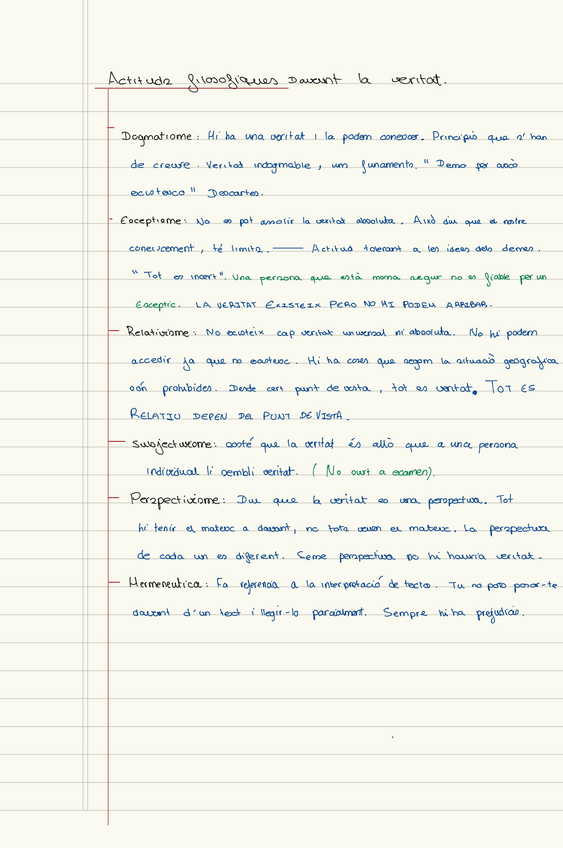 Actituds filosofiques Davant la veritat.
Dogmatisme: Hi ha una veritat i la podem coneixer. Principis que s'han
de creure. Veritat indogmable, um funaments. "Demo per això
existeixo" Descartes.
Esceptisme: No es pot assolir la veritat absoluta. Això diu que el nostre
coneixement, té limits. — Actitud tolerant a les idees dels demes.
"Tot es incert". Una persona que està massa segur no es fiable per un
Esceptic. LA VERITAT EXISTEIX PERO NO HI PODEM ARRIBAR.
Relativisme: No existeix cap veritat universal ni absoluta. No hi podem
accedir ja que no existeix. Hi ha coses que segom la situació geografica
són prohibides. Desde cert punt de vista, tot es veritat. TOT ES
RELATIU DEPEN DEL PUNT DE VISTA.
Subjectivisme: sosté que la veritat és allò que a una persona
individual li sembli veritat. (No surt a examen).
Perspectivisme: Diu que la veritat es una perspectiva. Tot
hi tenir el mateix a davant, no tots veuen el mateix. La perspectiva
de cada un es diferent. Sense perspectiva no hi hauria veritat.
Hermeneutica: Fa referencia a la interpretació de textos. Tu no pots posar-te
davant d'un text i llegir-lo parcialment. Sempre hi ha prejudicis.